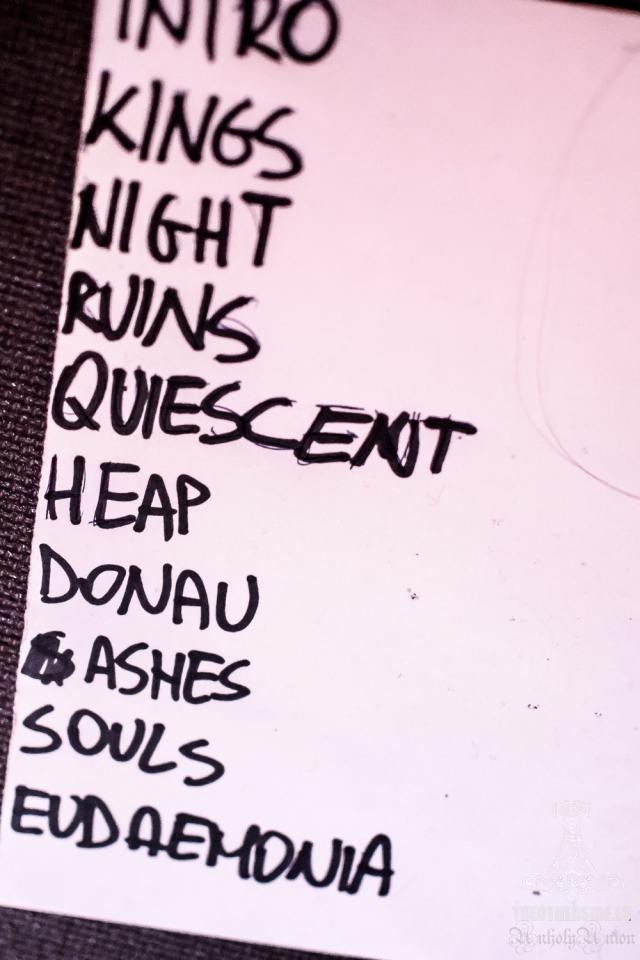 INTRO
KINGS
NIGHT
RUINS
QUIESCENT
HEAP
DONAU
ASHES
SOULS
EUDAEMONIA
Unholy Union